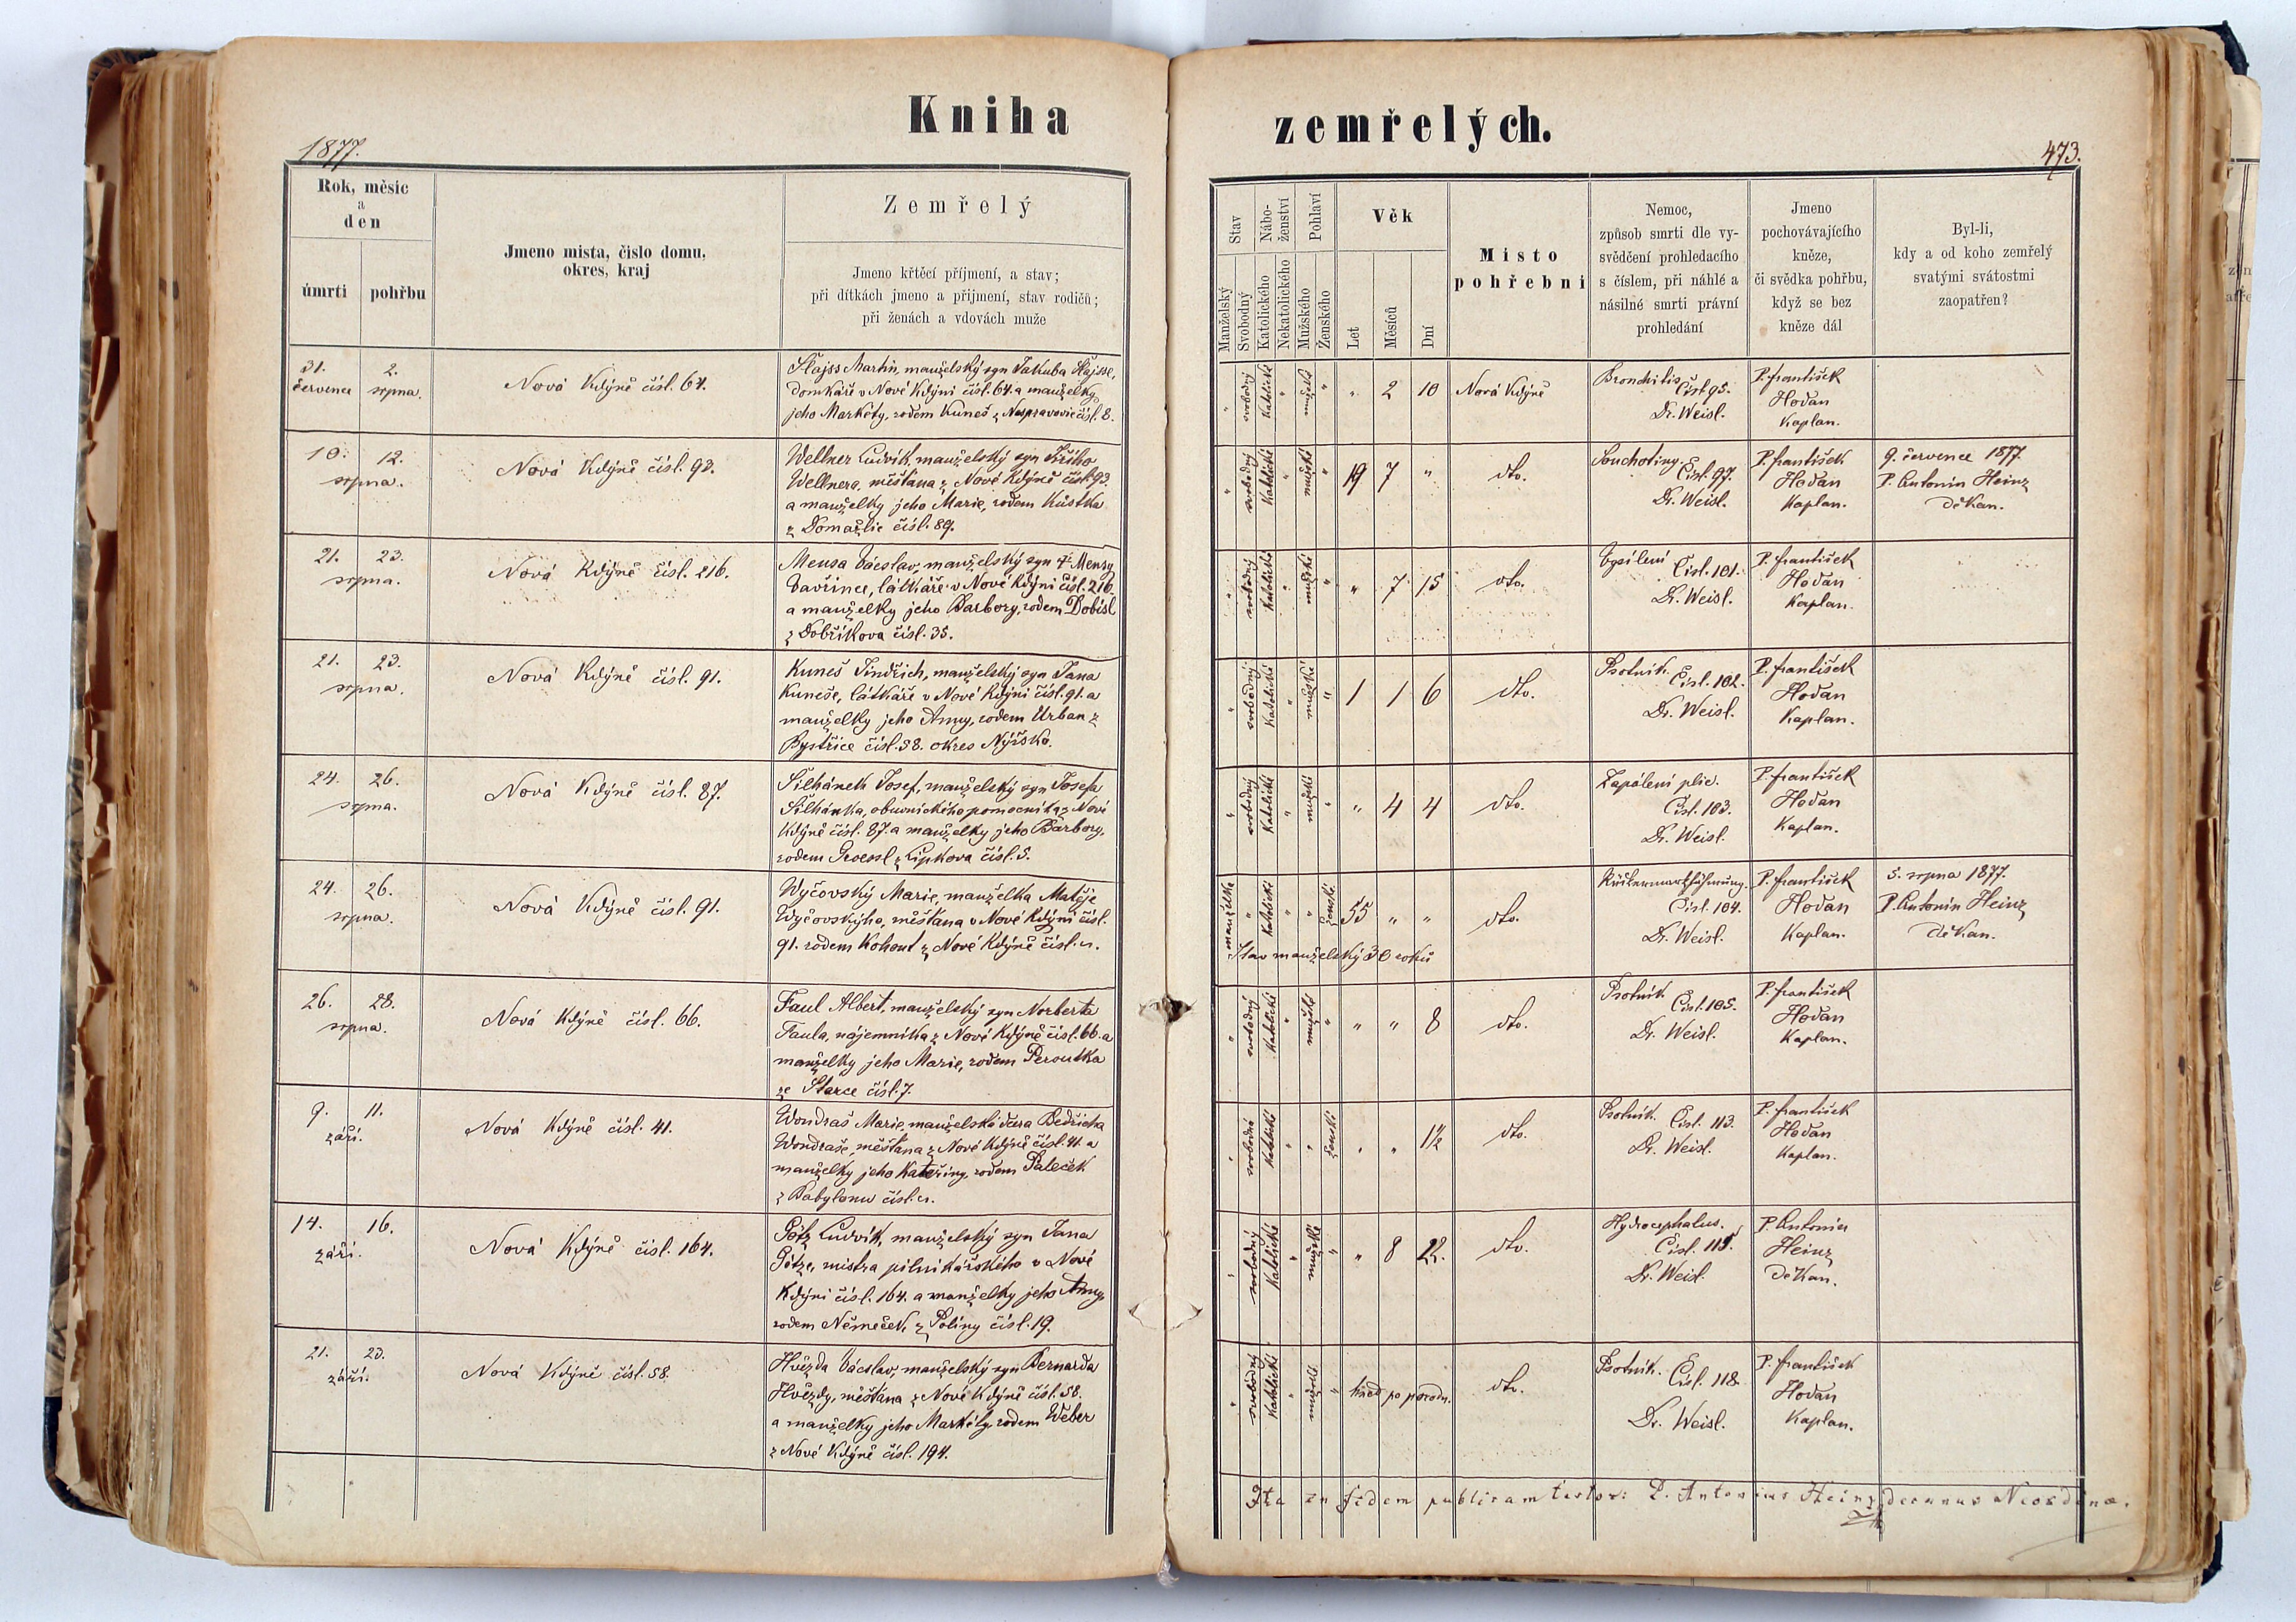 Kniha
zemřelých.
1877.
473.
Rok, měsíc
a
den
úmrtí
pohřbu
Jmeno místa, číslo domu,
okres, kraj
Zemřelý
Jmeno křtěcí příjmení, a stav;
při dítkách jmeno a přijmení, stav rodičů;
při ženách a vdovách muže
Stav
Manželský
Svobodný
Nábo-
ženství
Katolického
Nekatolického
Pohlaví
Mužského
Ženského
Věk
Let
Měsíců
Dní
Místo
pohřební
Nemoc,
způsob smrti dle vy-
svědčení prohledacího
s číslem, při náhlé a
násilné smrti právní
prohledání
Jmeno
pochovávajícího
kněze,
či svědka pohřbu,
když se bez
kněze dál
Byl-li,
kdy a od koho zemřelý
svatými svátostmi
zaopatřen?
31. července
2. srpna.
Nová Kdýně čísl. 64.
Flajss Martin, manželský syn Jakuba Flajsse,
domkáře v Nové Kdýni čísl. 64. a manželky
jeho Markéty, rodem Kuneš z Nespravovic čísl. 8.
" svobodný katolický " mužské "
" 2 10
Nová Kdýně
Bronchitis
Čísl. 95.
Dr. Weisl.
P. František
Hodan
Kaplan.
10. 12.
srpna.
Nová Kdýně čísl. 93.
Wellner Ludvík, manželský syn
Wellnera, měšťana z Nové Kdýně čísl. 93.
a manželky jeho Marie, rodem Kůstka
z Domažlic čísl. 89.
" svobodný katolický " mužské "
19 7 "
dto.
Souchotiny.
Čísl. 97.
Dr. Weisl.
P. František
Hodan
Kaplan.
9. července 1877.
P. Antonín Heinz
děkan.
21. 23.
srpna.
Nová Kdýně čísl. 216.
Mensa Václav, manželský syn Mensy
Vavřince, látkáře v Nové Kdýni čísl. 216.
a manželky jeho Barbory, rodem Dobisl
z Dobříkova čísl. 35.
" svobodný katolický " mužské "
" 7 15
dto.
Čísl. 101.
Dr. Weisl.
P. František
Hodan
Kaplan.
21. 23.
srpna.
Nová Kdýně čísl. 91.
Kuneš Jindřich, manželský syn Jana
Kuneše, látkáře v Nové Kdýni čísl. 91. a
manželky jeho Anny, rodem Urban z
Bystřice čísl. 58. okres Nýrsko.
" svobodný katolický " mužské "
1 1 6
dto.
Psotník.
Čísl. 102.
Dr. Weisl.
P. František
Hodan
Kaplan.
24. 26.
srpna.
Nová Kdýně čísl. 87.
Šilhánek Josef, manželský syn Josefa
Šilhánka, obuvnického pomocníka z Nové
Kdýně čísl. 87. a manželky jeho Barbory,
rodem Groessl z Lipkova čísl. 5.
" svobodný katolický " mužské "
" 4 4
dto.
Zapálení plic.
Čísl. 103.
Dr. Weisl.
P. František
Hodan
Kaplan.
24. 26.
srpna.
Nová Kdýně čísl. 91.
Wyčovský Marie, manželka Matěje
Wyčovskýho, měšťana v Nové Kdýni čísl.
91. rodem Kohout z Nové Kdýně čísl.
manželka " katolický " " ženské
55 " "
Stav manželský 30 roků
dto.
Rückenmarkslähmung.
Čísl. 104.
Dr. Weisl.
P. František
Hodan
Kaplan.
5. srpna 1877.
P. Antonín Heinz
děkan.
26. 28.
srpna.
Nová Kdýně čísl. 66.
Faul Albert, manželský syn Norberta
Faula, nájemníka z Nové Kdýně čísl. 66. a
manželky jeho Marie, rodem Peroutka
ze Starce čísl. 7.
" svobodný katolický " mužské "
" " 8
dto.
Psotník
Čísl. 105.
Dr. Weisl.
P. František
Hodan
Kaplan.
9. 11.
září.
Nová Kdýně čísl. 41.
Wondraš Marie, manželská dcera Bedřicha
Wondraše, měšťana z Nové Kdýně čísl. 41. a
manželky jeho Kateřiny, rodem Paleček
z Babylonu čísl.
" svobodná katolický " " ženské
" " 1½
dto.
Psotník. Čísl. 113.
Dr. Weisl.
P. František
Hodan
Kaplan.
14. 16.
září.
Nová Kdýně čísl. 164.
Götz Ludvík, manželský syn Jana
Götze, mistra pilnikářského v Nové
Kdýni čísl. 164. a manželky jeho Anny,
rodem Němeček z Poliny čísl. 19.
" svobodný katolický " mužské "
" 8 22.
dto.
Hydrocephalus.
Čísl. 115.
Dr. Weisl.
P. Antonín
Heinz
děkan.
21. 23.
září.
Nová Kdýně čísl. 58.
Hvězda Václav, manželský syn Bernarda
Hvězdy, měšťana z Nové Kdýně čísl. 58.
a manželky jeho Markéty, rodem Weber
z Nové Kdýně čísl. 194.
" svobodný katolický " mužské "
hned po porodu.
dto.
Psotník. Čísl. 118.
Dr. Weisl.
P. František
Hodan
Kaplan.
Ita in fidem publicam testor: P. Antonius Heinz decanus Neogdinae.